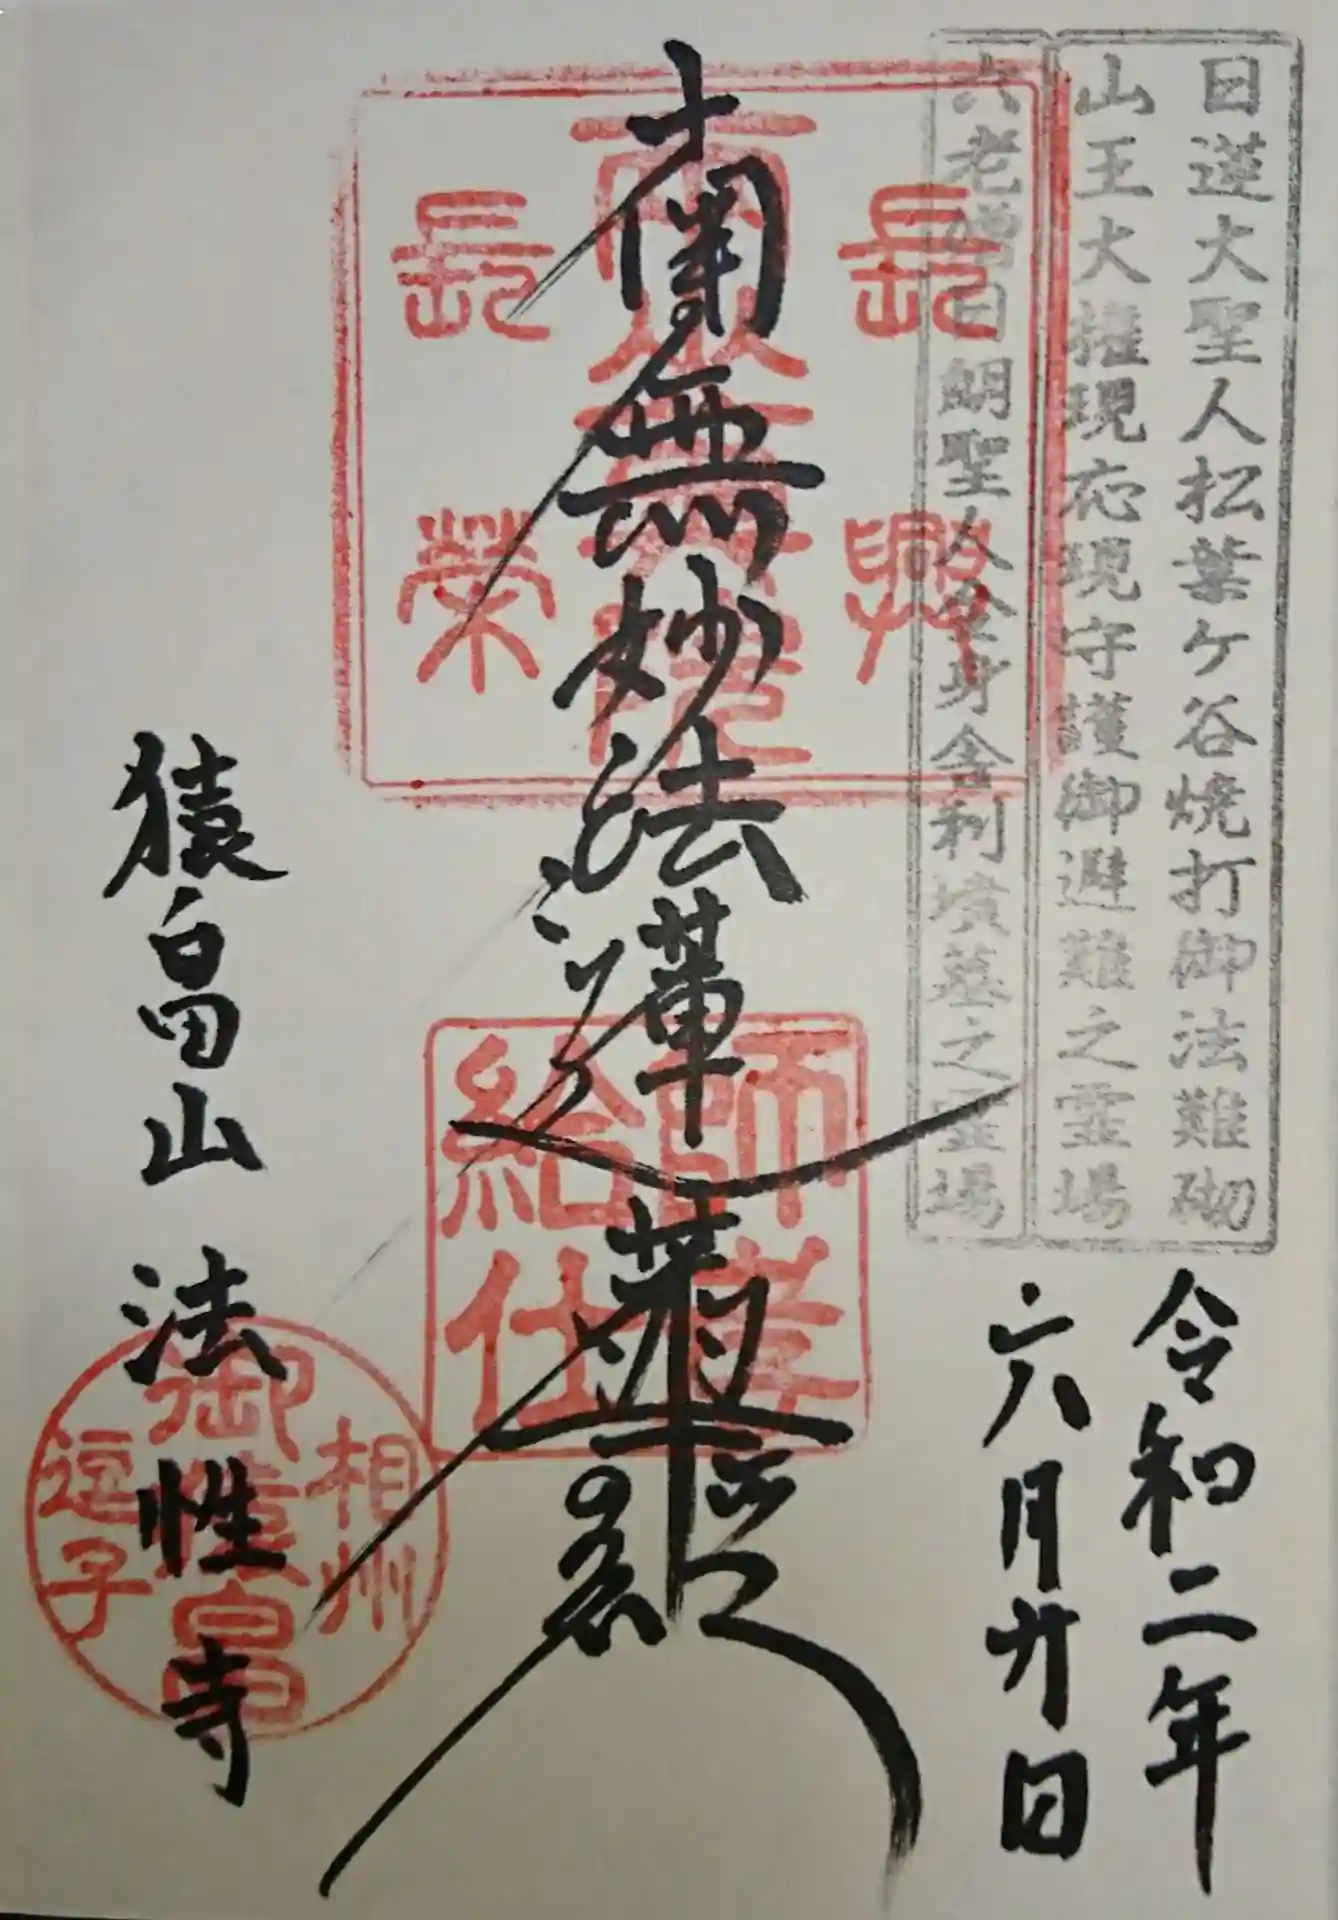 日蓮大聖人松葉ケ谷焼打御法難砌
山王大権現応現守護御避難之霊場
六老僧日朗聖人全身舎利墳墓之霊場
令和二年
六月廿日
長興
長榮
南無妙法蓮華経
師孝
給仕
猿畠山 法性寺
相州
御猿畠
逗子